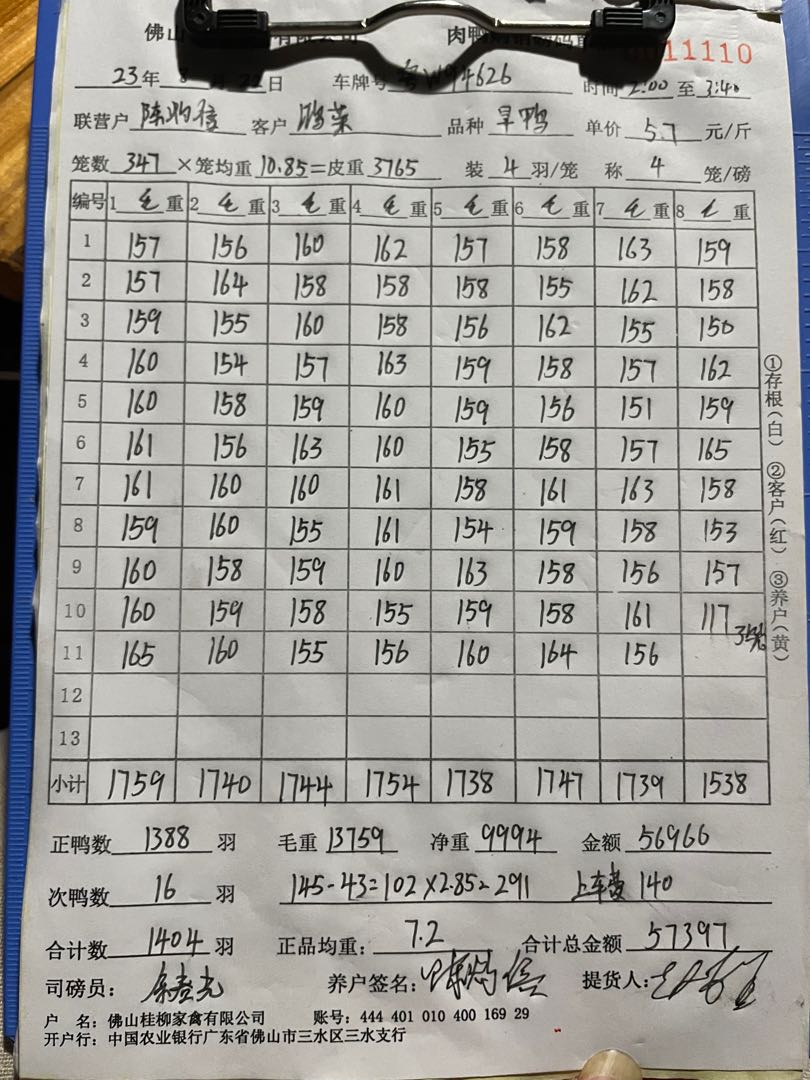 佛山 有限公司 肉鸭 0011110
23年8月22日 车牌号 粤W94626 时间 2:00 至 3:40
联营户 陈灼信 客户 品种 旱鸭 单价 5.7 元/斤
笼数 347 ×笼均重 10.85=皮重 3765 装 4 羽/笼 称 4 笼/磅
编号 1 毛 重 2 毛 重 3 毛 重 4 毛 重 5 毛 重 6 毛 重 7 毛 重 8 毛 重
1 157 156 160 162 157 158 163 159
2 157 164 158 158 158 155 162 158
3 159 155 160 158 156 162 155 150
4 160 154 157 163 159 158 157 162
5 160 158 159 160 159 156 151 159
6 161 156 163 160 155 158 157 165
7 161 160 160 161 158 161 163 158
8 159 160 155 161 154 159 158 153
9 160 158 159 160 163 158 156 157
10 160 159 158 155 159 158 161 117 3笼
11 165 160 155 156 160 164 156
12
13
小计 1759 1740 1744 1754 1738 1747 1739 1538
正鸭数 1388 羽 毛重 13759 净重 9994 金额 56966
次鸭数 16 羽 145-43=102×2.85=291 上车费 140
合计数 1404 羽 正品均重: 7.2 合计总金额 57397
司磅员: 养户签名: 陈灼信 提货人:
户 名: 佛山桂柳家禽有限公司 账号: 444 401 010 400 169 29
开户行: 中国农业银行广东省佛山市三水区三水支行
①存根(白) ②客户(红) ③养户(黄)